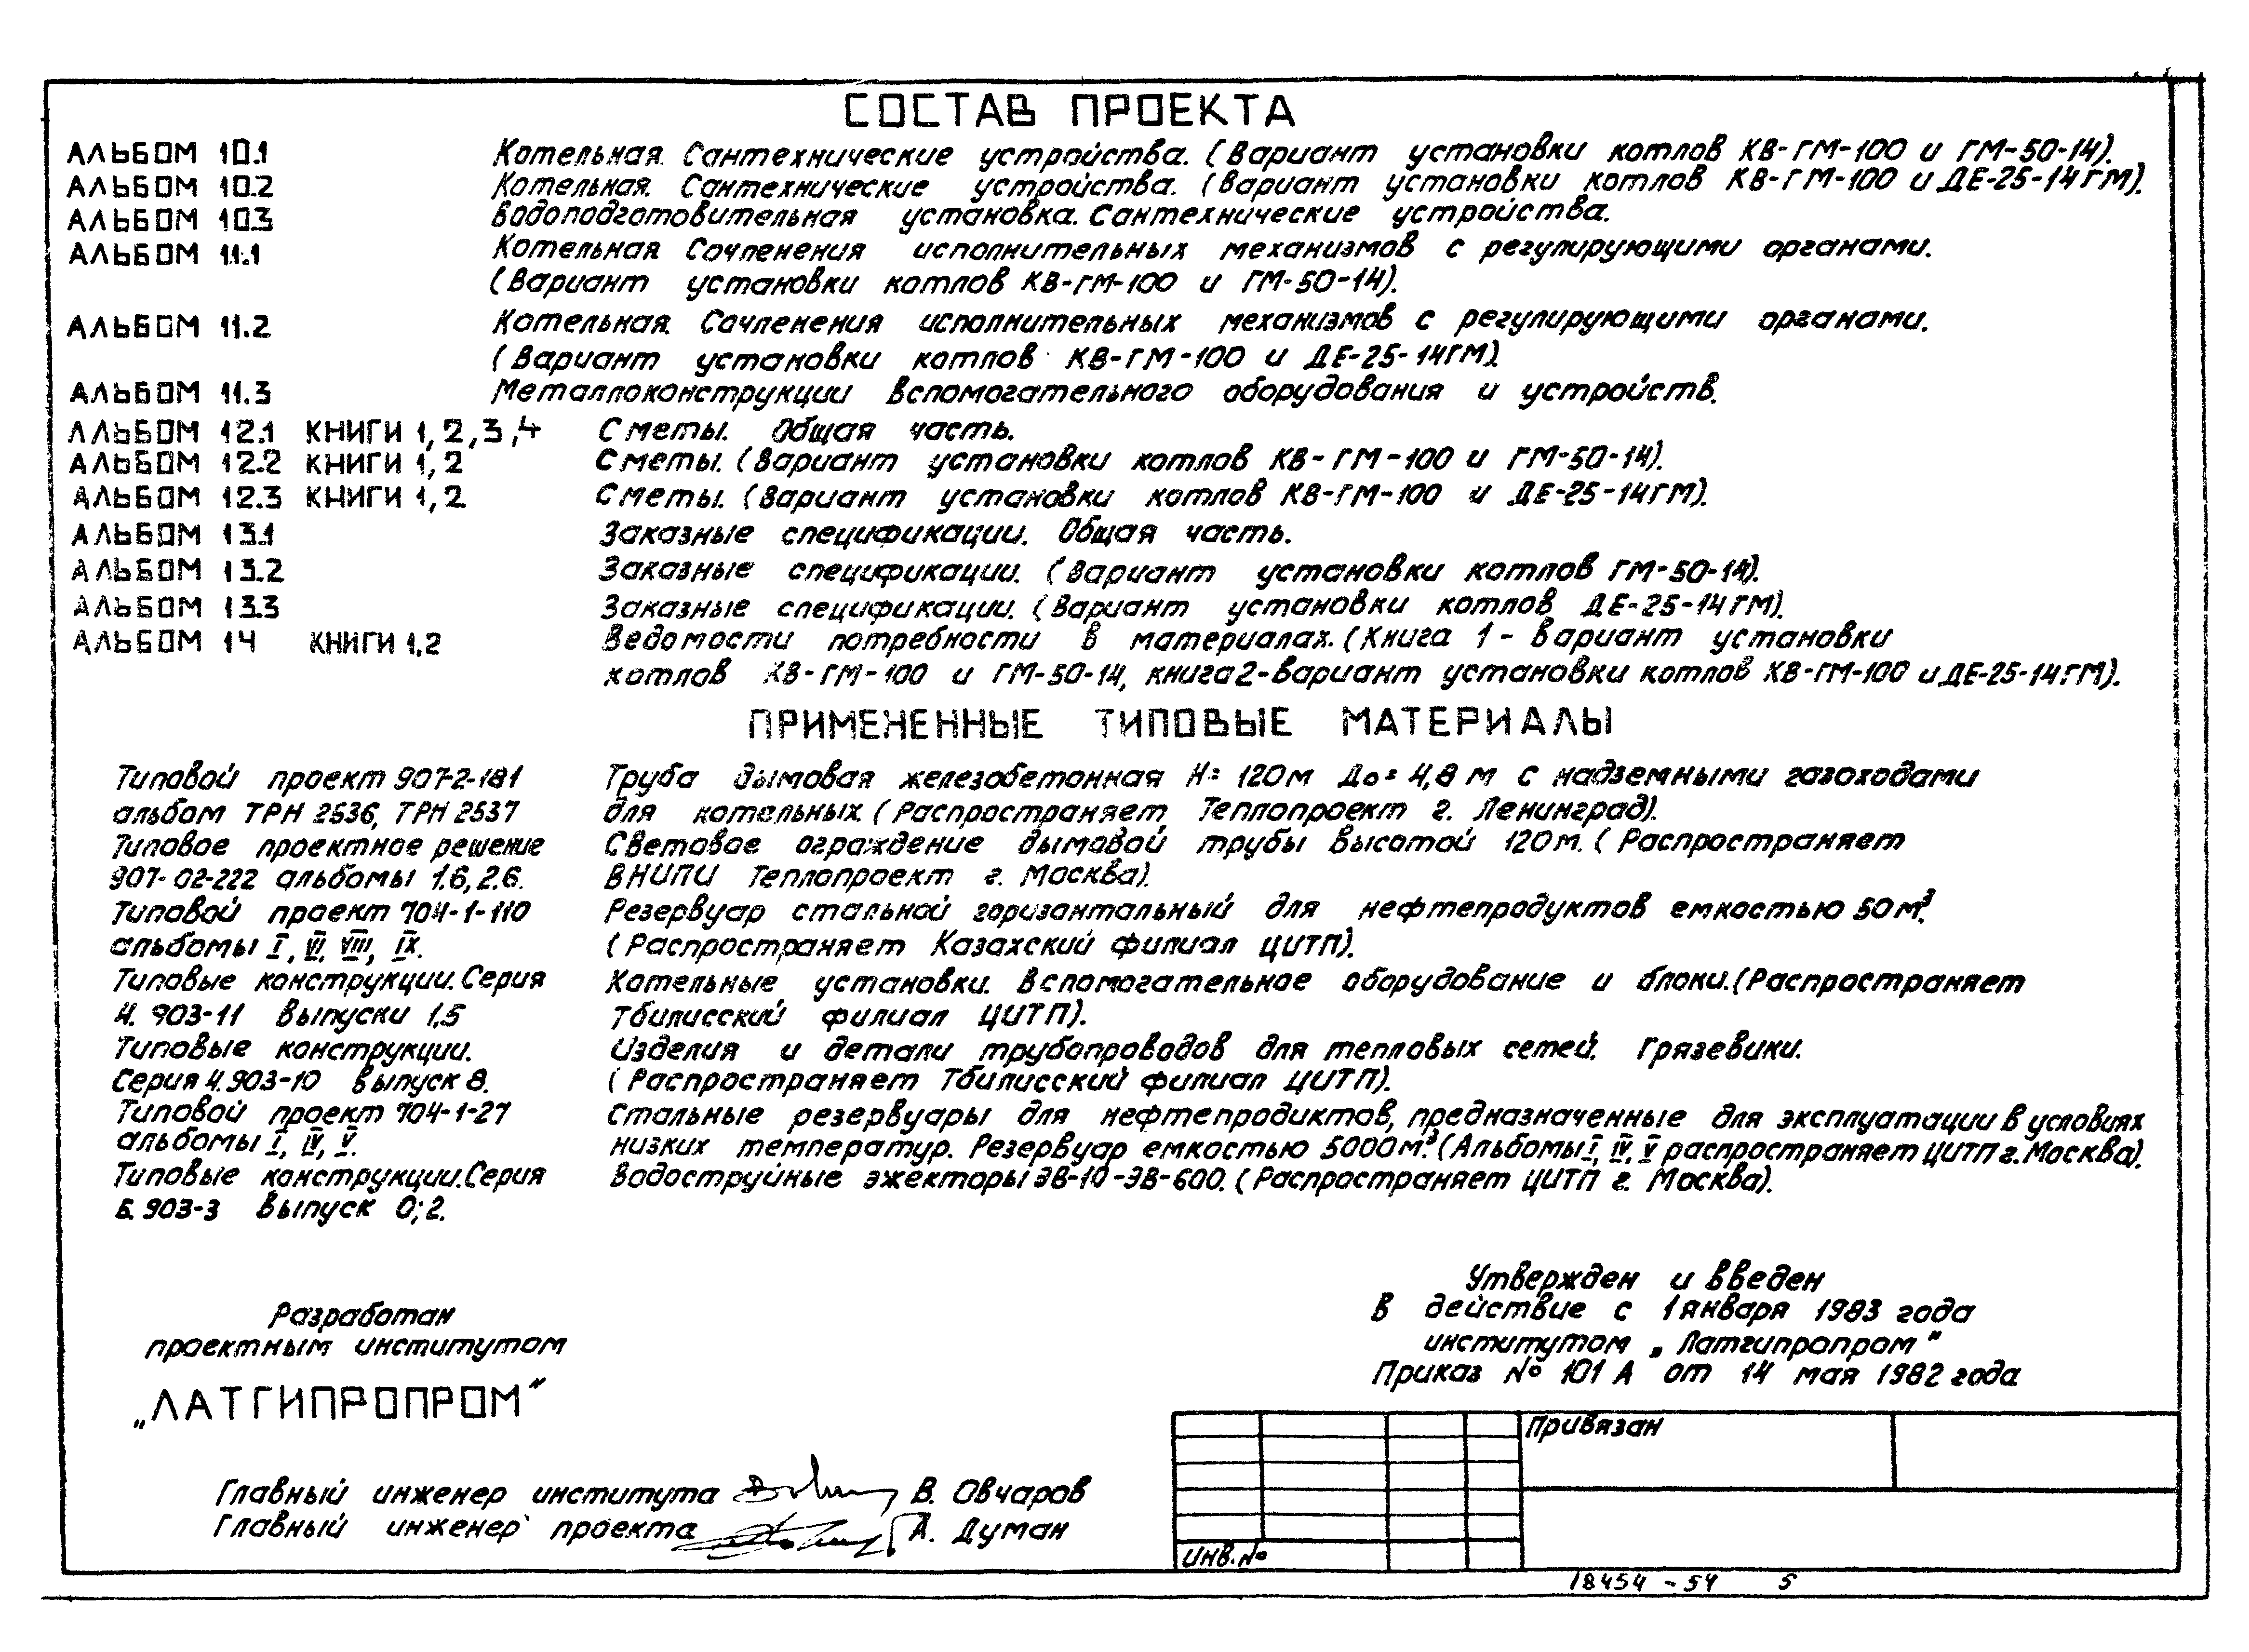 СОСТАВ ПРОЕКТА
АЛЬБОМ 10.1 Котельная. Сантехнические устройства. (Вариант установки котлов КВ-ГМ-100 и ГМ-50-14).
АЛЬБОМ 10.2 Котельная. Сантехнические устройства. (Вариант установки котлов КВ-ГМ-100 и ДЕ-25-14ГМ).
АЛЬБОМ 10.3 Водоподготовительная установка. Сантехнические устройства.
АЛЬБОМ 11.1 Котельная. Сочленения исполнительных механизмов с регулирующими органами.
(Вариант установки котлов КВ-ГМ-100 и ГМ-50-14).
АЛЬБОМ 11.2 Котельная. Сочленения исполнительных механизмов с регулирующими органами.
(Вариант установки котлов КВ-ГМ-100 и ДЕ-25-14ГМ)
АЛЬБОМ 11.3 Металлоконструкции вспомогательного оборудования и устройств.
АЛЬБОМ 12.1 КНИГИ 1, 2, 3, 4 Сметы. Общая часть.
АЛЬБОМ 12.2 КНИГИ 1, 2 Сметы. (Вариант установки котлов КВ-ГМ-100 и ГМ-50-14).
АЛЬБОМ 12.3 КНИГИ 1, 2 Сметы. (Вариант установки котлов КВ-ГМ-100 и ДЕ-25-14ГМ).
АЛЬБОМ 13.1 Заказные спецификации. Общая часть.
АЛЬБОМ 13.2 Заказные спецификации. (Вариант установки котлов ГМ-50-14).
АЛЬБОМ 13.3 Заказные спецификации. (Вариант установки котлов ДЕ-25-14ГМ).
АЛЬБОМ 14 КНИГИ 1,2 Ведомости потребности в материалах. (Книга 1 - вариант установки
котлов КВ-ГМ-100 и ГМ-50-14, книга 2-вариант установки котлов КВ-ГМ-100 и ДЕ-25-14ГМ).
ПРИМЕНЕННЫЕ ТИПОВЫЕ МАТЕРИАЛЫ
Типовой проект 907-2-181 Труба дымовая железобетонная Н= 120м До= 4,8 м с надземными газоходами
альбом ТРН 2536, ТРН 2537 для котельных (Распространяет Теплопроект г. Ленинград).
Типовое проектное решение Световое ограждение дымовой трубы высотой 120м. (Распространяет
907-02-222 альбомы 1.6, 2.6. ВНИПИ Теплопроект г. Москва).
Типовой проект 704-1-110 Резервуар стальной горизонтальный для нефтепродуктов емкостью 50м³.
альбомы I, VI, VIII, IX. (Распространяет Казахский филиал ЦИТП).
Типовые конструкции. Серия Котельные установки. Вспомогательное оборудование и блоки. (Распространяет
4. 903-11 выпуски 1,5 Тбилисский филиал ЦИТП).
Типовые конструкции. Изделия и детали трубопроводов для тепловых сетей. Грязевики.
Серия 4.903-10 выпуск 8. (Распространяет Тбилисский филиал ЦИТП).
Типовой проект 704-1-27 Стальные резервуары для нефтепродиктов, предназначенные для эксплуатации в условиях
альбомы I, IV, V. низких температур. Резервуар емкостью 5000м³. (Альбомы I, IV, V распространяет ЦИТП г. Москва).
Типовые конструкции. Серия Водоструйные эжекторы ЭВ-10-ЭВ-600. (Распространяет ЦИТП г. Москва).
5. 903-3 выпуск 0; 2.
Утвержден и введен
в действие с 1 января 1983 года
институтом „Латгипропром"
Приказ № 101 А от 14 мая 1982 года
Разработан
проектным институтом
„ЛАТГИПРОПРОМ"
Главный инженер института В. Овчаров
Главный инженер проекта А. Думан
Привязан
Инв. №
18454 - 54 5